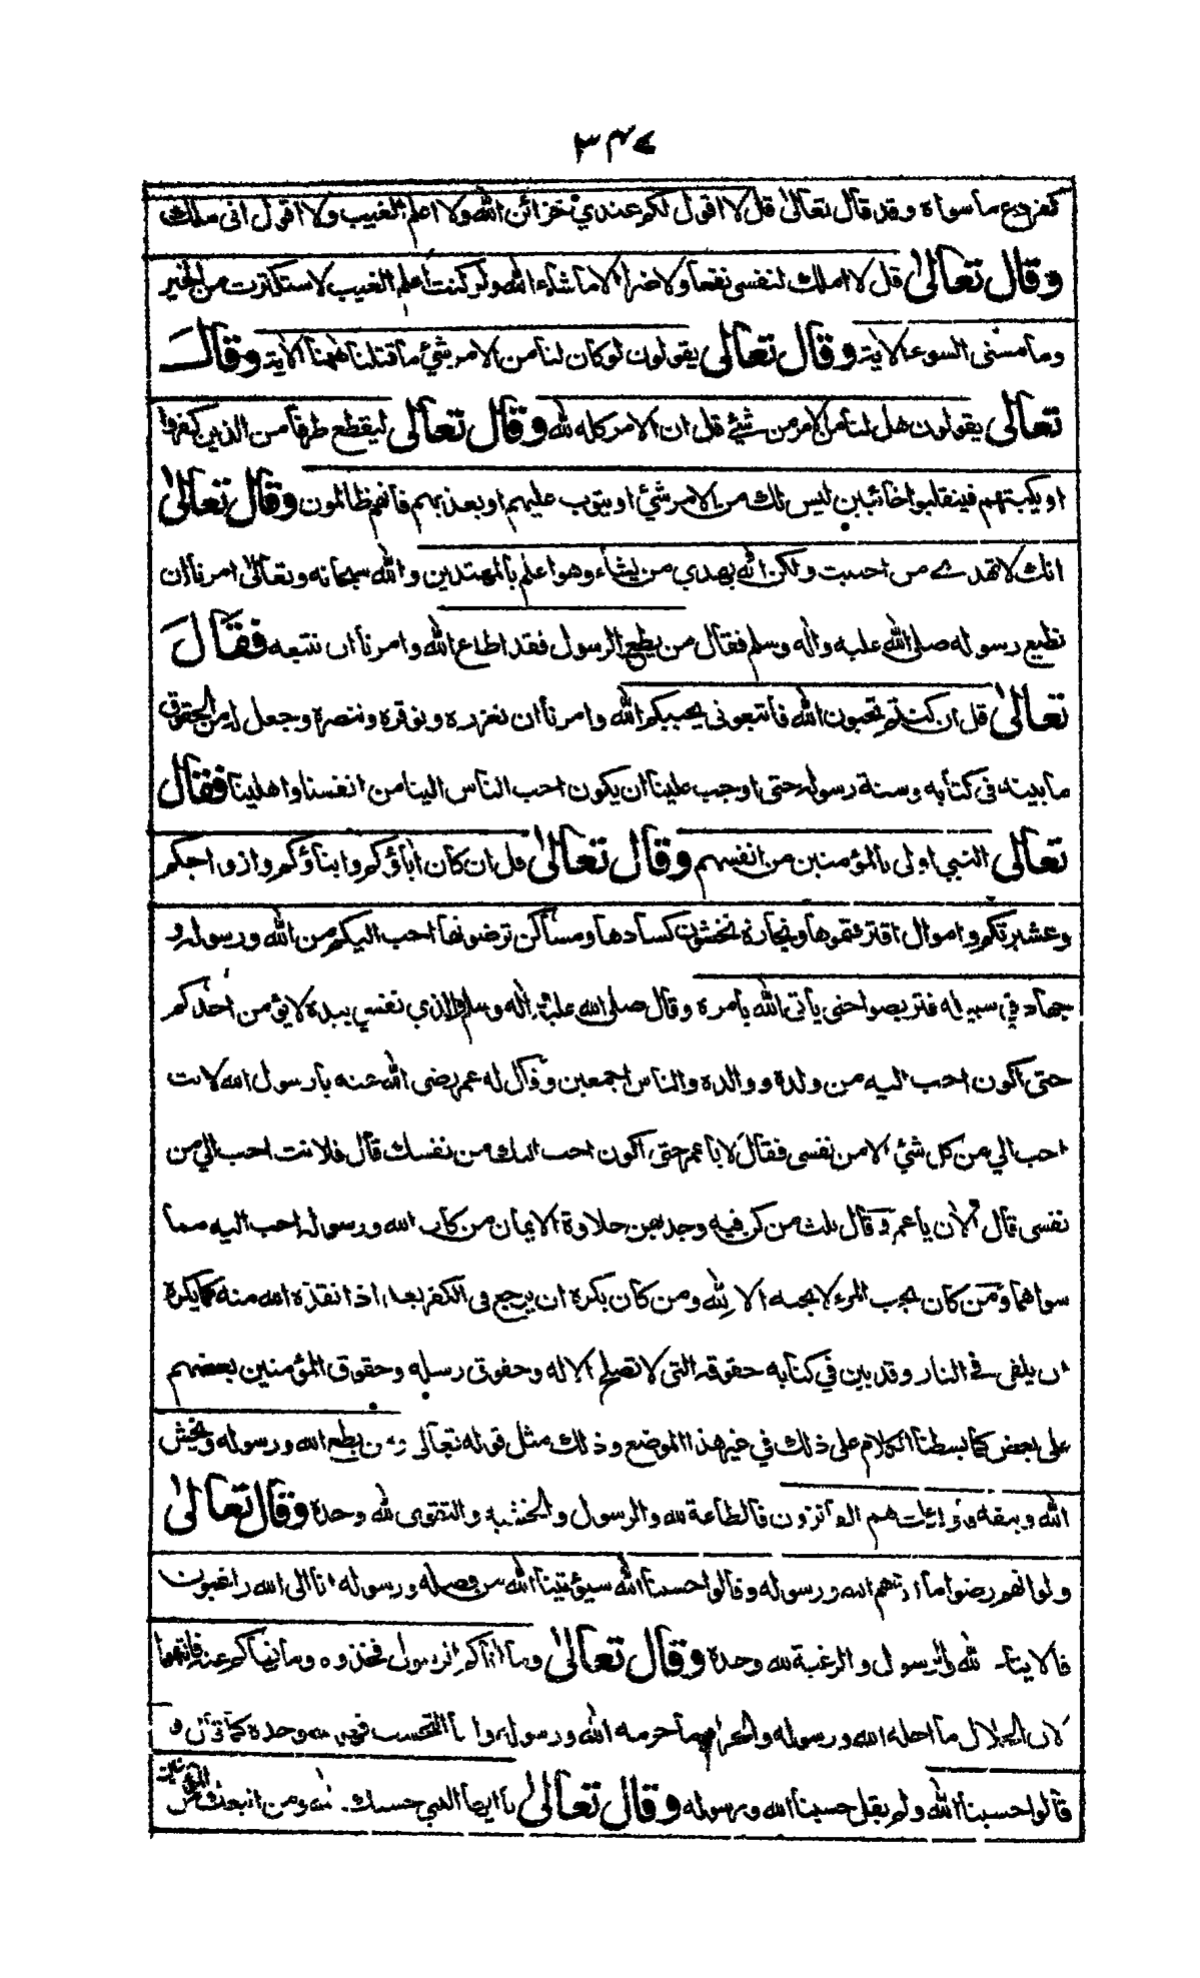 ٣٤٧
ما سواه وقد قال تعالى قل لا اقول لكم عندي خزائن الله ولا اعلم الغيب ولا اقول انى ملك
وقال تعالى قل لا املك لنفسى نفعا ولا ضرا الا ما شاء الله ولو كنت اعلم الغيب لاستكثرت من الخير
وما مسنى السوء الاية وقال تعالى يقولون لو كان لنا من الامر شئ ما قتلنا ههنا الاية وقال
تعالى يقولون هل لنا من الامر من شئ قل ان الامر كله لله وقال تعالى ليقطع طرفا من الذين كفروا
او يكبتهم فينقلبوا خائبين ليس لك من الامر شئ او يتوب عليهم او يعذبهم فانهم ظالمون وقال تعالى
انك لا تهدے من احببت ولكن الله يهدي من يشاء وهو اعلم بالمهتدين والله سبحانه وتعالى امرنا ان
نطيع رسوله صلى الله عليه واله وسلم فقال من يطع الرسول فقد اطاع الله وامرنا ان نتبعه فقال
تعالى قل ان كنتم تحبون الله فاتبعونى يحببكم الله وامرنا ان نعزره ونوقره وننصره وجعل له من الحقوق
ما بينه فى كتابه وسنة رسوله حتى اوجب علينا ان يكون احب الناس الينا من انفسنا واهلينا فقال
تعالى النبي اولى بالمؤمنين من انفسهم وقال تعالى قل ان كان اباؤكم وابناؤكم وازواجكم
وعشيرتكم واموال اقترفتموها وتجارة تخشون كسادها ومساكن ترضونها احب اليكم من الله ورسوله و
جهاد في سبيله فتربصوا حتى يأتى الله بامره وقال صلى الله عليه واله وسلم والذي نفسي بيده لا يؤمن احدكم
حتى اكون احب اليه من ولده ووالده والناس اجمعين وقال له عمر رضى الله عنه يا رسول الله لانت
احب الي من كل شئ الا من نفسى فقال لا يا عمر حتى اكون احب اليك من نفسك قال فلانت احب الي من
نفسى قال الأن يا عمر وقال ثلث من كن فيه وجد بهن حلاوة الايمان من كان الله ورسوله احب اليه مما
سواهما ومن كان يحب المرء لا يحبه الا لله ومن كان يكره ان يرجع فى الكفر بعد اذ انقذه الله منه كما يكره
ان يلقى فے النار وقد بين في كتابه حقوقه التى لا تصلح الا له وحقوق رسله وحقوق المؤمنين بعضهم
على بعض كما بسطنا الكلام على ذلك في غير هذا الموضع وذلك مثل قوله تعالى ومن يطع الله ورسوله ويخش
الله ويتقه فاولئك هم الفائزون فالطاعة لله والرسول والخشية والتقوى لله وحده وقال تعالى
ولو انهم رضوا ما اتهم الله ورسوله وقالوا حسبنا الله سيؤتينا الله من فضله ورسوله انا الى الله راغبون
فالايتاء لله والرسول والرغبة لله وحده وقال تعالى وما اتاكم الرسول فخذوه وما نهاكم عنه فانتهوا
لان الحلال ما احله الله ورسوله والحرام ما حرمه الله ورسوله واما التحسب فهو لله وحده كما قال و
قالوا حسبنا الله ولم يقل حسبنا الله ورسوله وقال تعالى يا ايها النبي حسبك الله ومن اتبعك من
المؤمنين